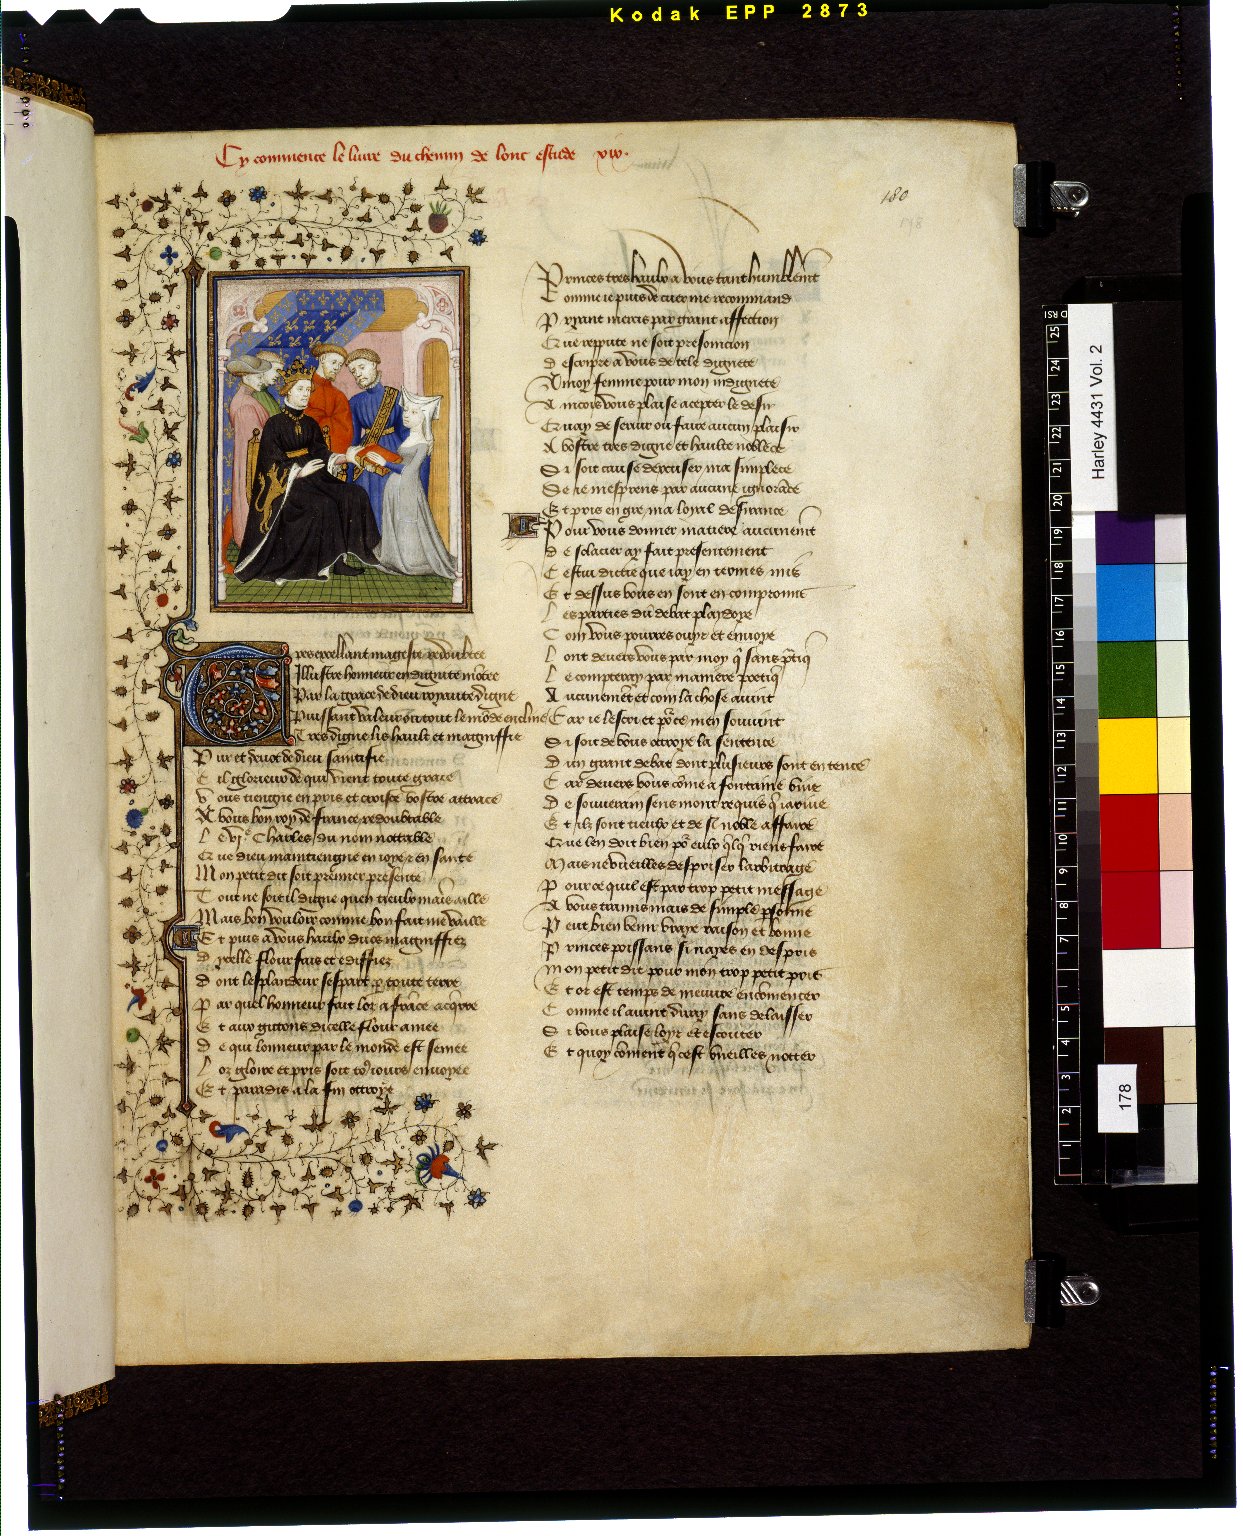 Kodak EPP 2873
Cy commence le livre du chemin de lonc estude xix.
180
178
Tres excellant mageste redoubtee
Illustre honneur en dignite mōtee
Par la grace de dieu royaute digne
Puissant valeur ou tout le mōde encline
Tres digne lis hault et magniffie
Pur et devot de dieu saintifie
Cil glorieux de qui vient toute grace
Vous tiengne en pris et croisse vostre attrace
A vous bon roy de france redoubtable
Le vi.e Charles du nom nottable
Que dieu maintiengne en joye et en sante
Mon petit dit soit premier presente
Tout ne soit il digne quen tieulx mains aille
Mais bon vouloir comme bon fait me vaille
Et puis a vous haulx ducs magniffiez
Dycelle flour fais et ediffiez
Dont lesplandeur sespart p toute terre
Par quel honneur fait loz a frāce acqrre
Et aux gittons dicelle flour amee
De qui lonneur par le monde est semee
Loz gloire et pris soit tousiours envoyee
Et paradis a la fin ottroye
Princes tres haulx a vous tant humblemēt
Comme je puis de cuer me recommand
Pryant mercis par grant affection
Que reppute ne soit presomcion
Descripre a vous de tele dignete
A moy femme pour mon indignete
Aincois vous plaise accepter le desir
Quay de servir ou faire aucun plaisir
A vostre tres digne et haulte noblece
Si soit cause dexcuser ma simplece
Se je mesprens par aucune ignorāce
Et pris en gre ma loyal desirance
Pour vous donner matiere aucunement
De solacier ay fait presentement
Cestui dictie que jay en termes mis
Et dessus vous en sont en compromis
Les parties du debat playdoye
Com vous pourres ouyr et envoye
Lont devers vous par moy q̄ sans prāctiq̄
Le compteray par maniere poetiq̄
Aucunemēt et com la chose avint
Car je lescoi et por ce men souvint
Si soit de vous ottroye la sentence
Dun grant debat dont plusieurs sont en tence
Car devers vous cōme a fontaine vive
De souverain sens mont requis q̄ jarrive
Et ilz sont tieulx et de si noble affaire
Que len doit bien por eulx q̄lq̄ riens faire
Mais ne vueilles despriser larbitrage
Pour ce quil est par trop petit message
A vous tramis mais de simple psonne
Peut bien venir vraye raison et bonne
Princes poissans si nayes en despris
Mon petit dit pour mon trop petit pris
Et or est temps de mettre en comencier
Comme il avint diray sans delaissier
Si vous plaise loyr et escouter
Et quoy coment q̄ cest vueilles notter
Harley 4431 Vol. 2
25
24
23
22
21
20
19
18
17
16
15
14
13
12
11
10
9
8
7
6
5
4
3
2
1
178